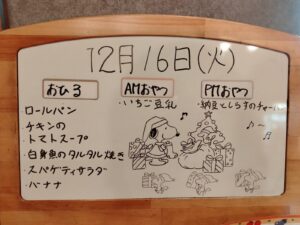 12月16日(火)
おひる
・ロールパン
・チキンの
・トマトスープ
・白身魚のタルタル焼き
・スパゲティサラダ
・バナナ
AMおやつ
・いちご豆乳
PMおやつ
・納豆としらすのチャーハン